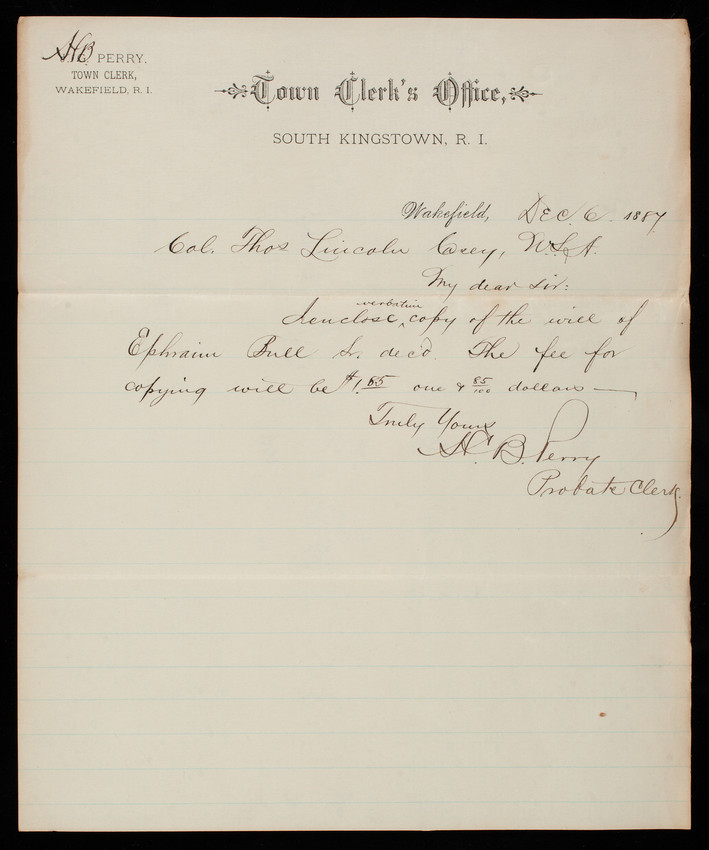 H B PERRY,
TOWN CLERK,
WAKEFIELD, R. I.
Town Clerk's Office,
SOUTH KINGSTOWN, R. I.
Wakefield, Dec. 6. 1887
Col. Thos Lincoln Casey, U.S.A.
My dear Sir:
I enclose verbatim copy of the will of
Ephraim Bull Sr. dec'd. The fee for
copying will be $1.85 one & 85/100 dollars —
Truly Yours
H. B. Perry
Probate Clerk.